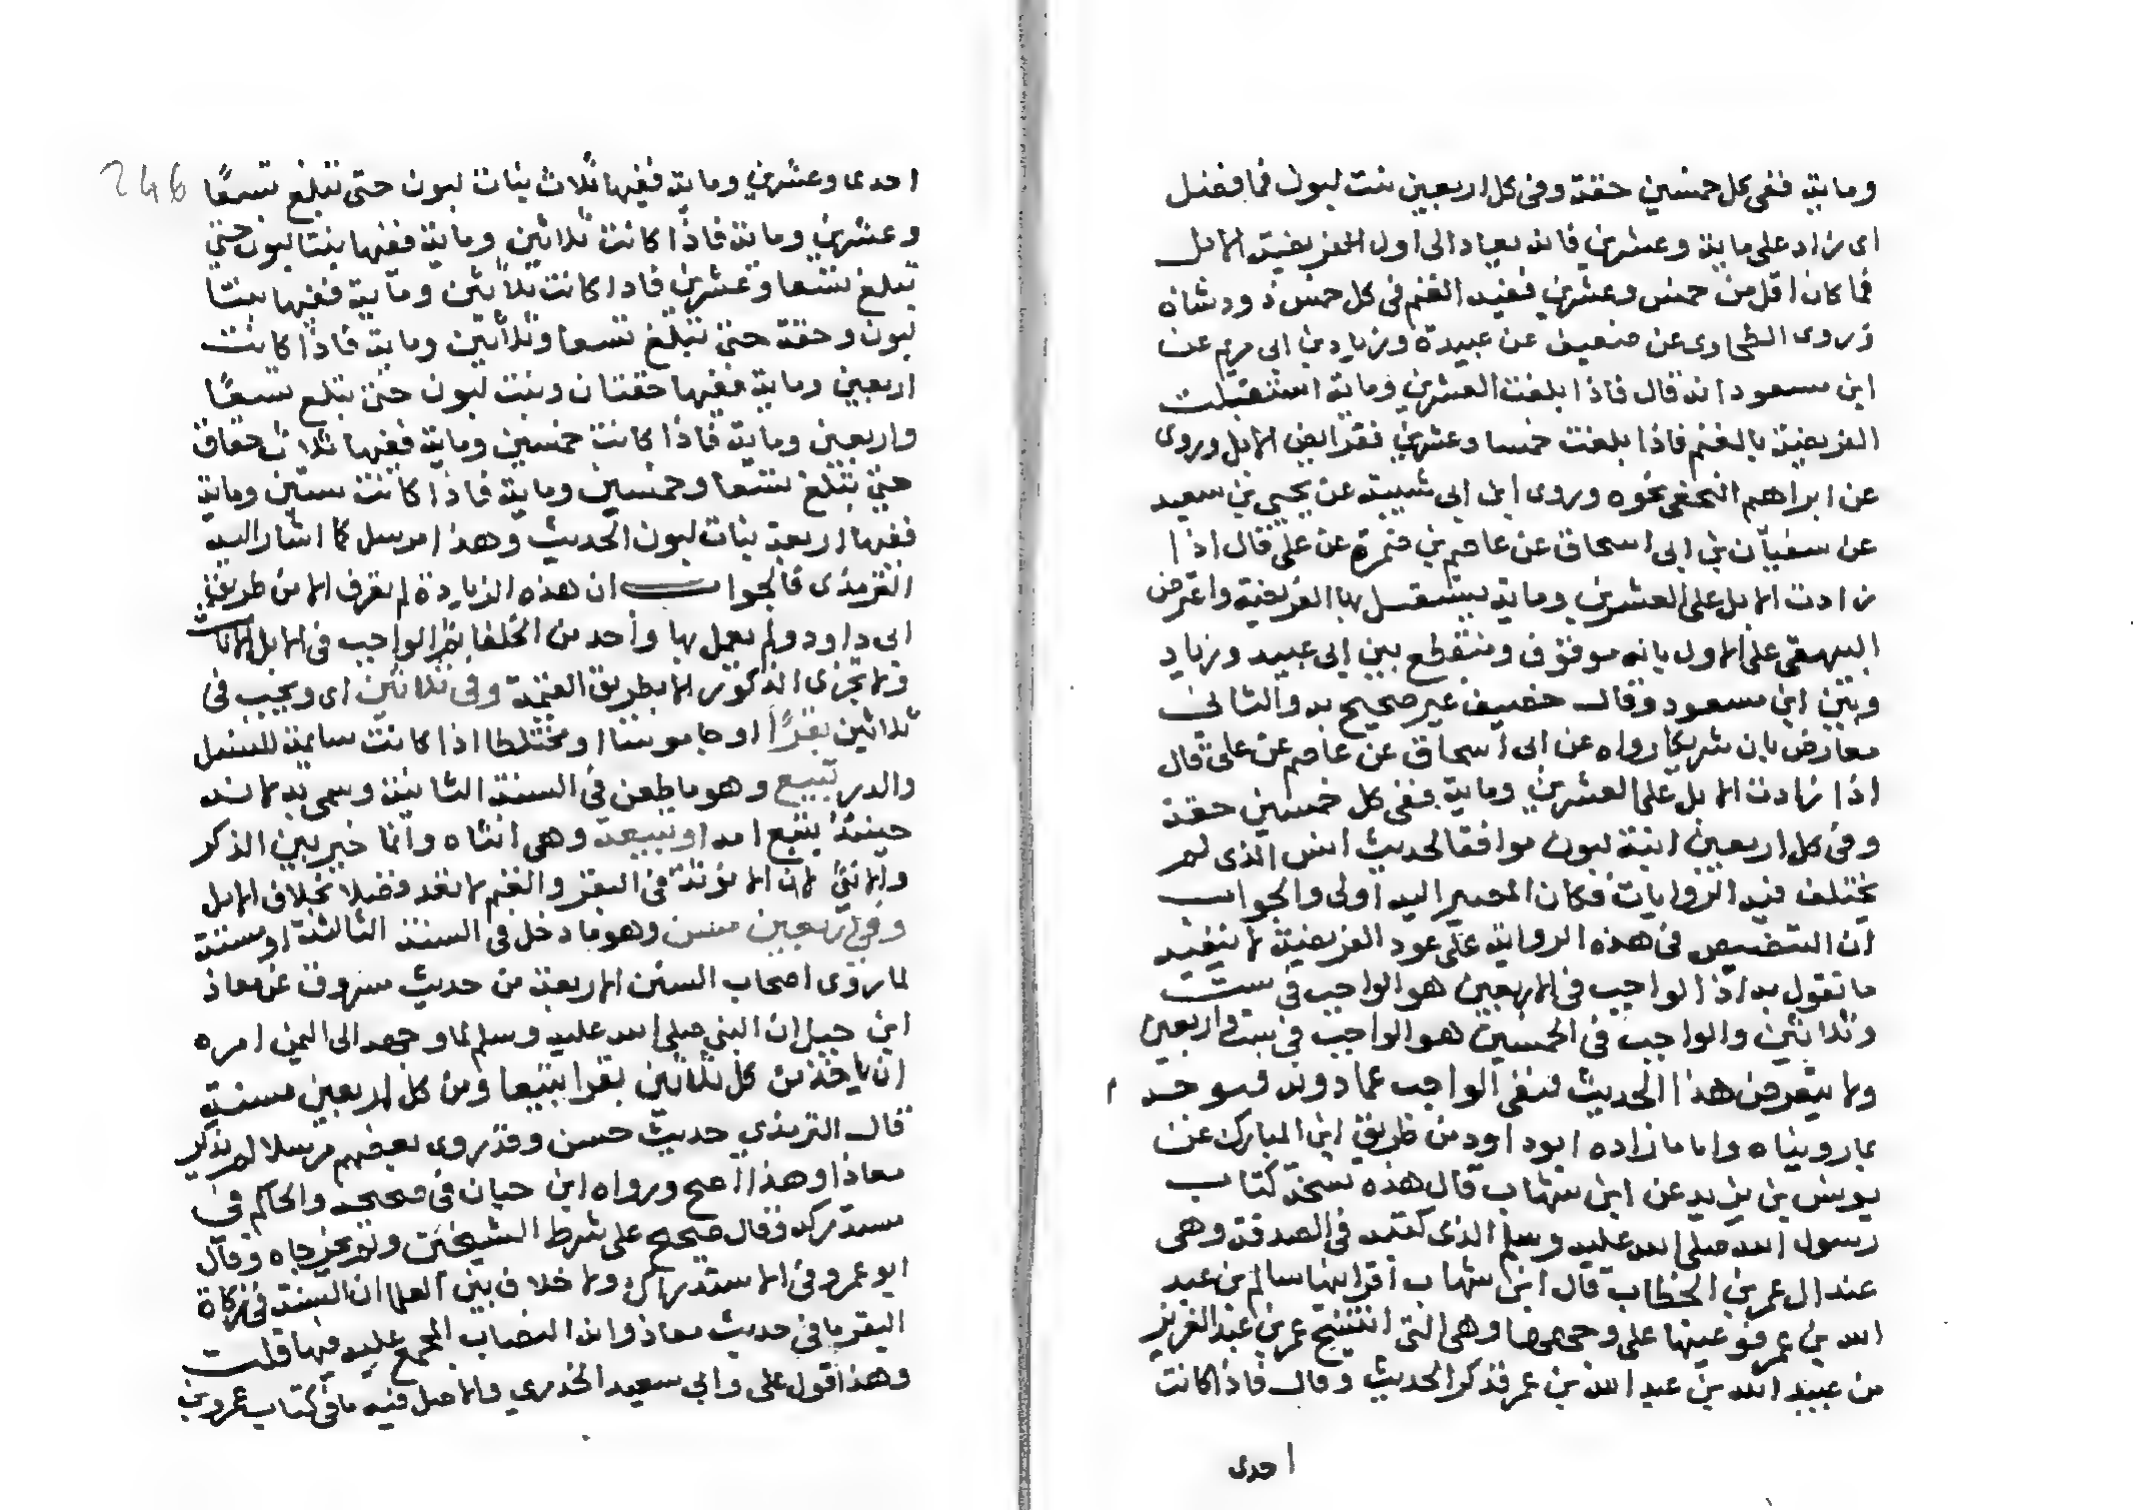 وماية ففى كل خمسين حقة وفى كل اربعين بنت لبون فما فضل
اى زاد على ماية وعشرين فانه يعاد الى اول الفريضة الابل
فما كان اقل من خمس وعشرين ففيه الغنم فى كل خمس ذود شاة
وروى الطحاوى عن خصيف عن عبيدة وزياد بن ابى مريم عن
ابن مسعود انه قال فاذا بلغت العشرين وماية استقبلت
الفريضة بالغنم فاذا بلغت خمسا وعشرين ففرايض الابل وروى
عن ابراهيم النخعى نحوه وروى ابن ابى شيبة عن يحيى بن سعيد
عن سفيان بن ابى اسحاق عن عاصم بن ضمرة عن على قال اذا
زادت الابل على العشرين وماية يستقبل بها الفريضة واعترض
البيهقى على الاول بانه موقوف ومنقطع بين ابى عبيد وزياد
وبين ابن مسعود وقال خصيف غير صحيح به والثانى
معارض بان شريكا رواه عن ابى اسحاق عن عاصم عن على قال
اذا زادت الابل على العشرين وماية ففى كل خمسين حقة
وفى كل اربعين ابنة لبون موافقا لحديث انس الذى لم
يختلف فيه الروايات فكان المصير اليه اولى والجواب
ان التنصيص فى هذه الرواية على عود الفريضة لا ينفيه
ما تقول به اذ الواجب فى الاربعين هو الواجب فى ست
وثلاثين والواجب فى الخمسين هو الواجب فى ست واربعين
ولا يتعرض هذا الحديث لنفى الواجب عما دونه فيوخذ
بما رويناه واما ما زاده ابو داود من طريق ابن المبارك عن
يونس بن يزيد عن ابن شهاب قال هذه نسخة كتاب
رسول الله صلى الله عليه وسلم الذى كتبه فى الصدقة وهى
عند ال عمر بن الخطاب قال ابن شهاب اقرانيها سالم بن عبد
الله بن عمر فوعيتها على وجهها وهى التى انتسخ عمر بن عبد العزيز
من عبيد الله بن عبد الله بن عمر فذكر الحديث وقال فاذا كانت
احدى
246
احدى وعشرين وماية ففيها ثلاث بنات لبون حتى تبلغ تسعًا
وعشرين وماية فاذا كانت ثلاثين وماية ففيها بنتا لبون حتى
تبلغ تسعا وعشرين فاذا كانت ثلاثين وماية ففيها بنتا
لبون وحقة حتى تبلغ تسعا وثلاثين وماية فاذا كانت
اربعين وماية ففيها حقتان وبنت لبون حتى تبلغ تسعًا
واربعين وماية فاذا كانت خمسين وماية ففيها ثلاث حقاق
حتى تبلغ تسعا وخمسين وماية فاذا كانت ستين وماية
ففيها اربعة بنات لبون الحديث وهذا مرسل كما اشار اليه
الترمذى فالجواب ان هذه الزيادة لم تعرف الا من طريق
ابى داود ولم يعمل بها واحد من الخلفا ثم الواجب فى الابل الاناث
ولا تجزى الذكور الا بطريق القيمة وفى ثلاثين اى ويجب فى
ثلاثين بقرًا او جاموسا او مختلطا اذا كانت سايمة للنسل
والدر تبيع وهو ما طعن فى السنة الثانية وسمى به لانه
حينئذ يتبع امه او تبيعة وهى انثاه وانما خير بين الذكر
والانثى لان الانوثة فى البقر والغنم لا تعد فضلا بخلاف الابل
وفى اربعين مسن وهو ما دخل فى السنة الثالثة او مسنة
لما روى اصحاب السنن الاربعة من حديث مسروق عن معاذ
ابن جبل ان النبى صلى الله عليه وسلم لما وجهه الى اليمن امره
ان ياخذ من كل ثلاثين بقرا تبيعا ومن كل اربعين مسنة
قال الترمذي حديث حسن وقد روى بعضهم مرسلا لم يذكر
معاذا وهذا اصح ورواه ابن حبان فى صحيحه والحاكم فى
مستدركه وقال صحيح على شرط الشيخين ولم يخرجاه وقال
ابو عمر وفى الاستدراك ولا خلاف بين العلما ان السنة فى زكاة
البقر ما فى حديث معاذ وانه النصاب المجمع عليه فيها قلت
وهذا قول على وابي سعيد الخدري والاصل فيه ما فى كتاب عمرو بن